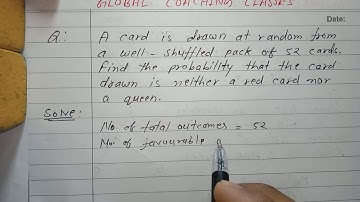 GLOBAL COACHING CLASSES
Date:
Q: A card is drawn at random from
a well-shuffled pack of 52 cards.
Find the probability that the card
drawn is neither a red card nor
a queen.
Solve:
No of total outcomes = 52
No. of favourable